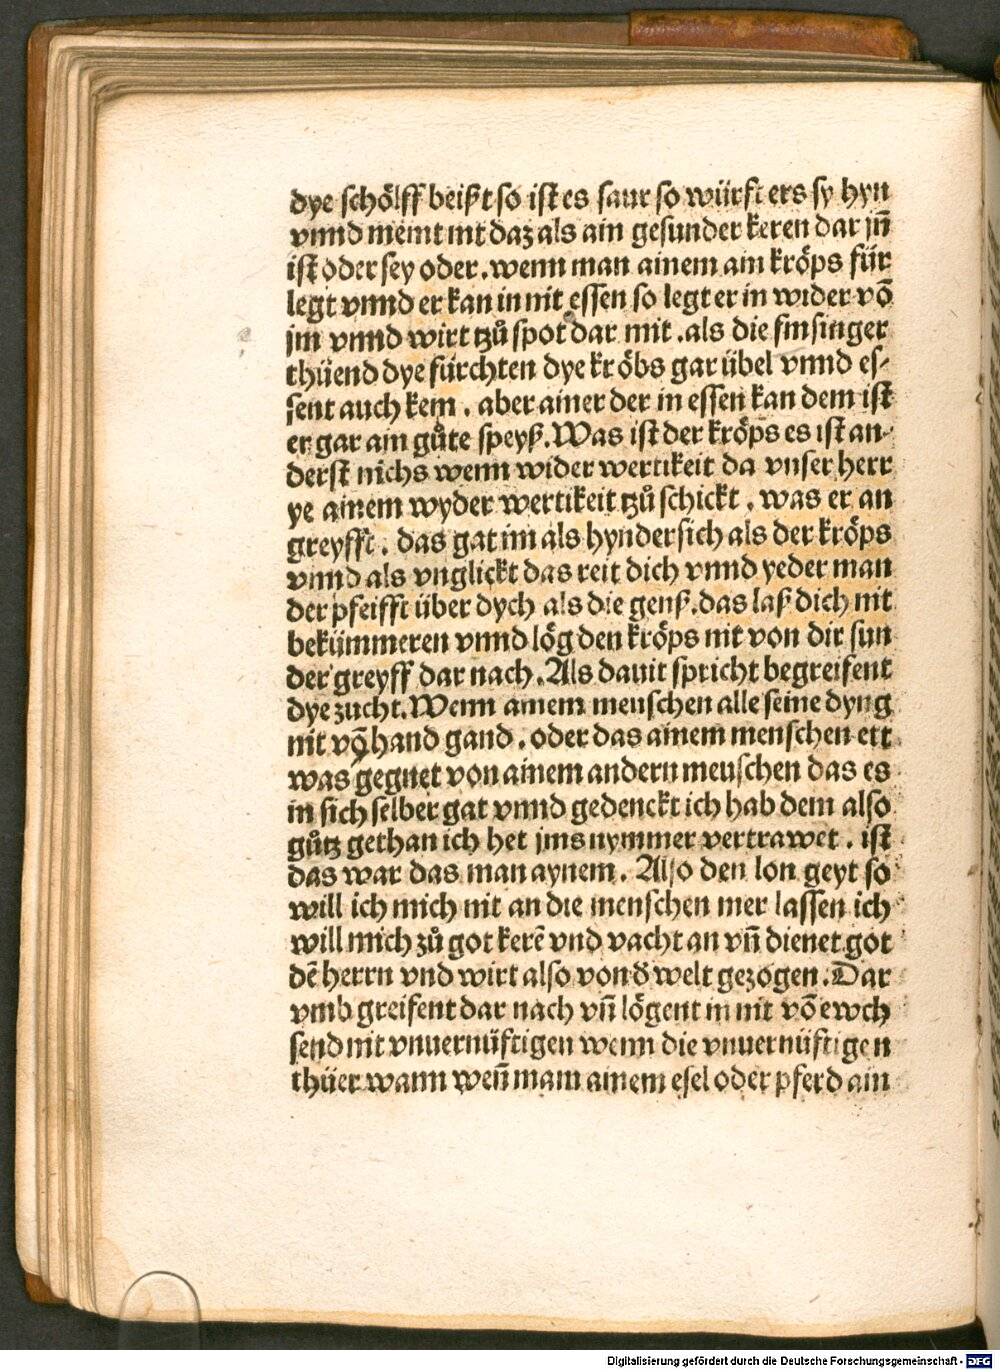 dye schölff beißt so ist es saur so würft ers sy hyn
vnnd meint nit daz als ain gesunder keren dar jn̄
ist oder sey oder. wenn man ainem ain kröps für
legt vnnd er kan in nit essen so legt er in wider vō
jm vnnd wirt tzů spot dar mit. als die finsinger
thüend dye fürchten dye kröbs gar übel vnnd es-
sent auch kein. aber ainer der in essen kan dem ist
er gar ain gůte speyß. Was ist der kröps es ist an-
derst nichs wenn wider wertikeit da vnser herr
ye ainem wyder wertikeit tzů schickt. was er an
greyfft. das gat im als hyndersich als der kröps
vnnd als vnglickt das reit dich vnnd yeder man
der pfeifft über dych als die genß. das laß dich nit
bekümmeren vnnd lög den kröps nit von dir sun
der greyff dar nach. Als dauit spricht begreifent
dye zucht. Wenn ainem menschen alle seine dyng
nit vō hand gand. oder das ainem menschen ett
was gegnet von ainem andern menschen das es
in sich selber gat vnnd gedenckt ich hab dem also
gůtz gethan ich het jms nymmer vertrawet. ist
das war das man aynem. Also den lon geyt so
will ich mich nit an die menschen mer lassen ich
will mich zů got kerē vnd vacht an vn̄ dienet got
dē herrn vnd wirt also von d̄ welt gezogen. Dar
vmb greifent dar nach vn̄ lögent in nit vō ewch
send nit vnuernüftigen wenn die vnuernüftigen
thüer wann wen̄ mam ainem esel oder pferd ain
Digitalisierung gefördert durch die Deutsche Forschungsgemeinschaft - DFG